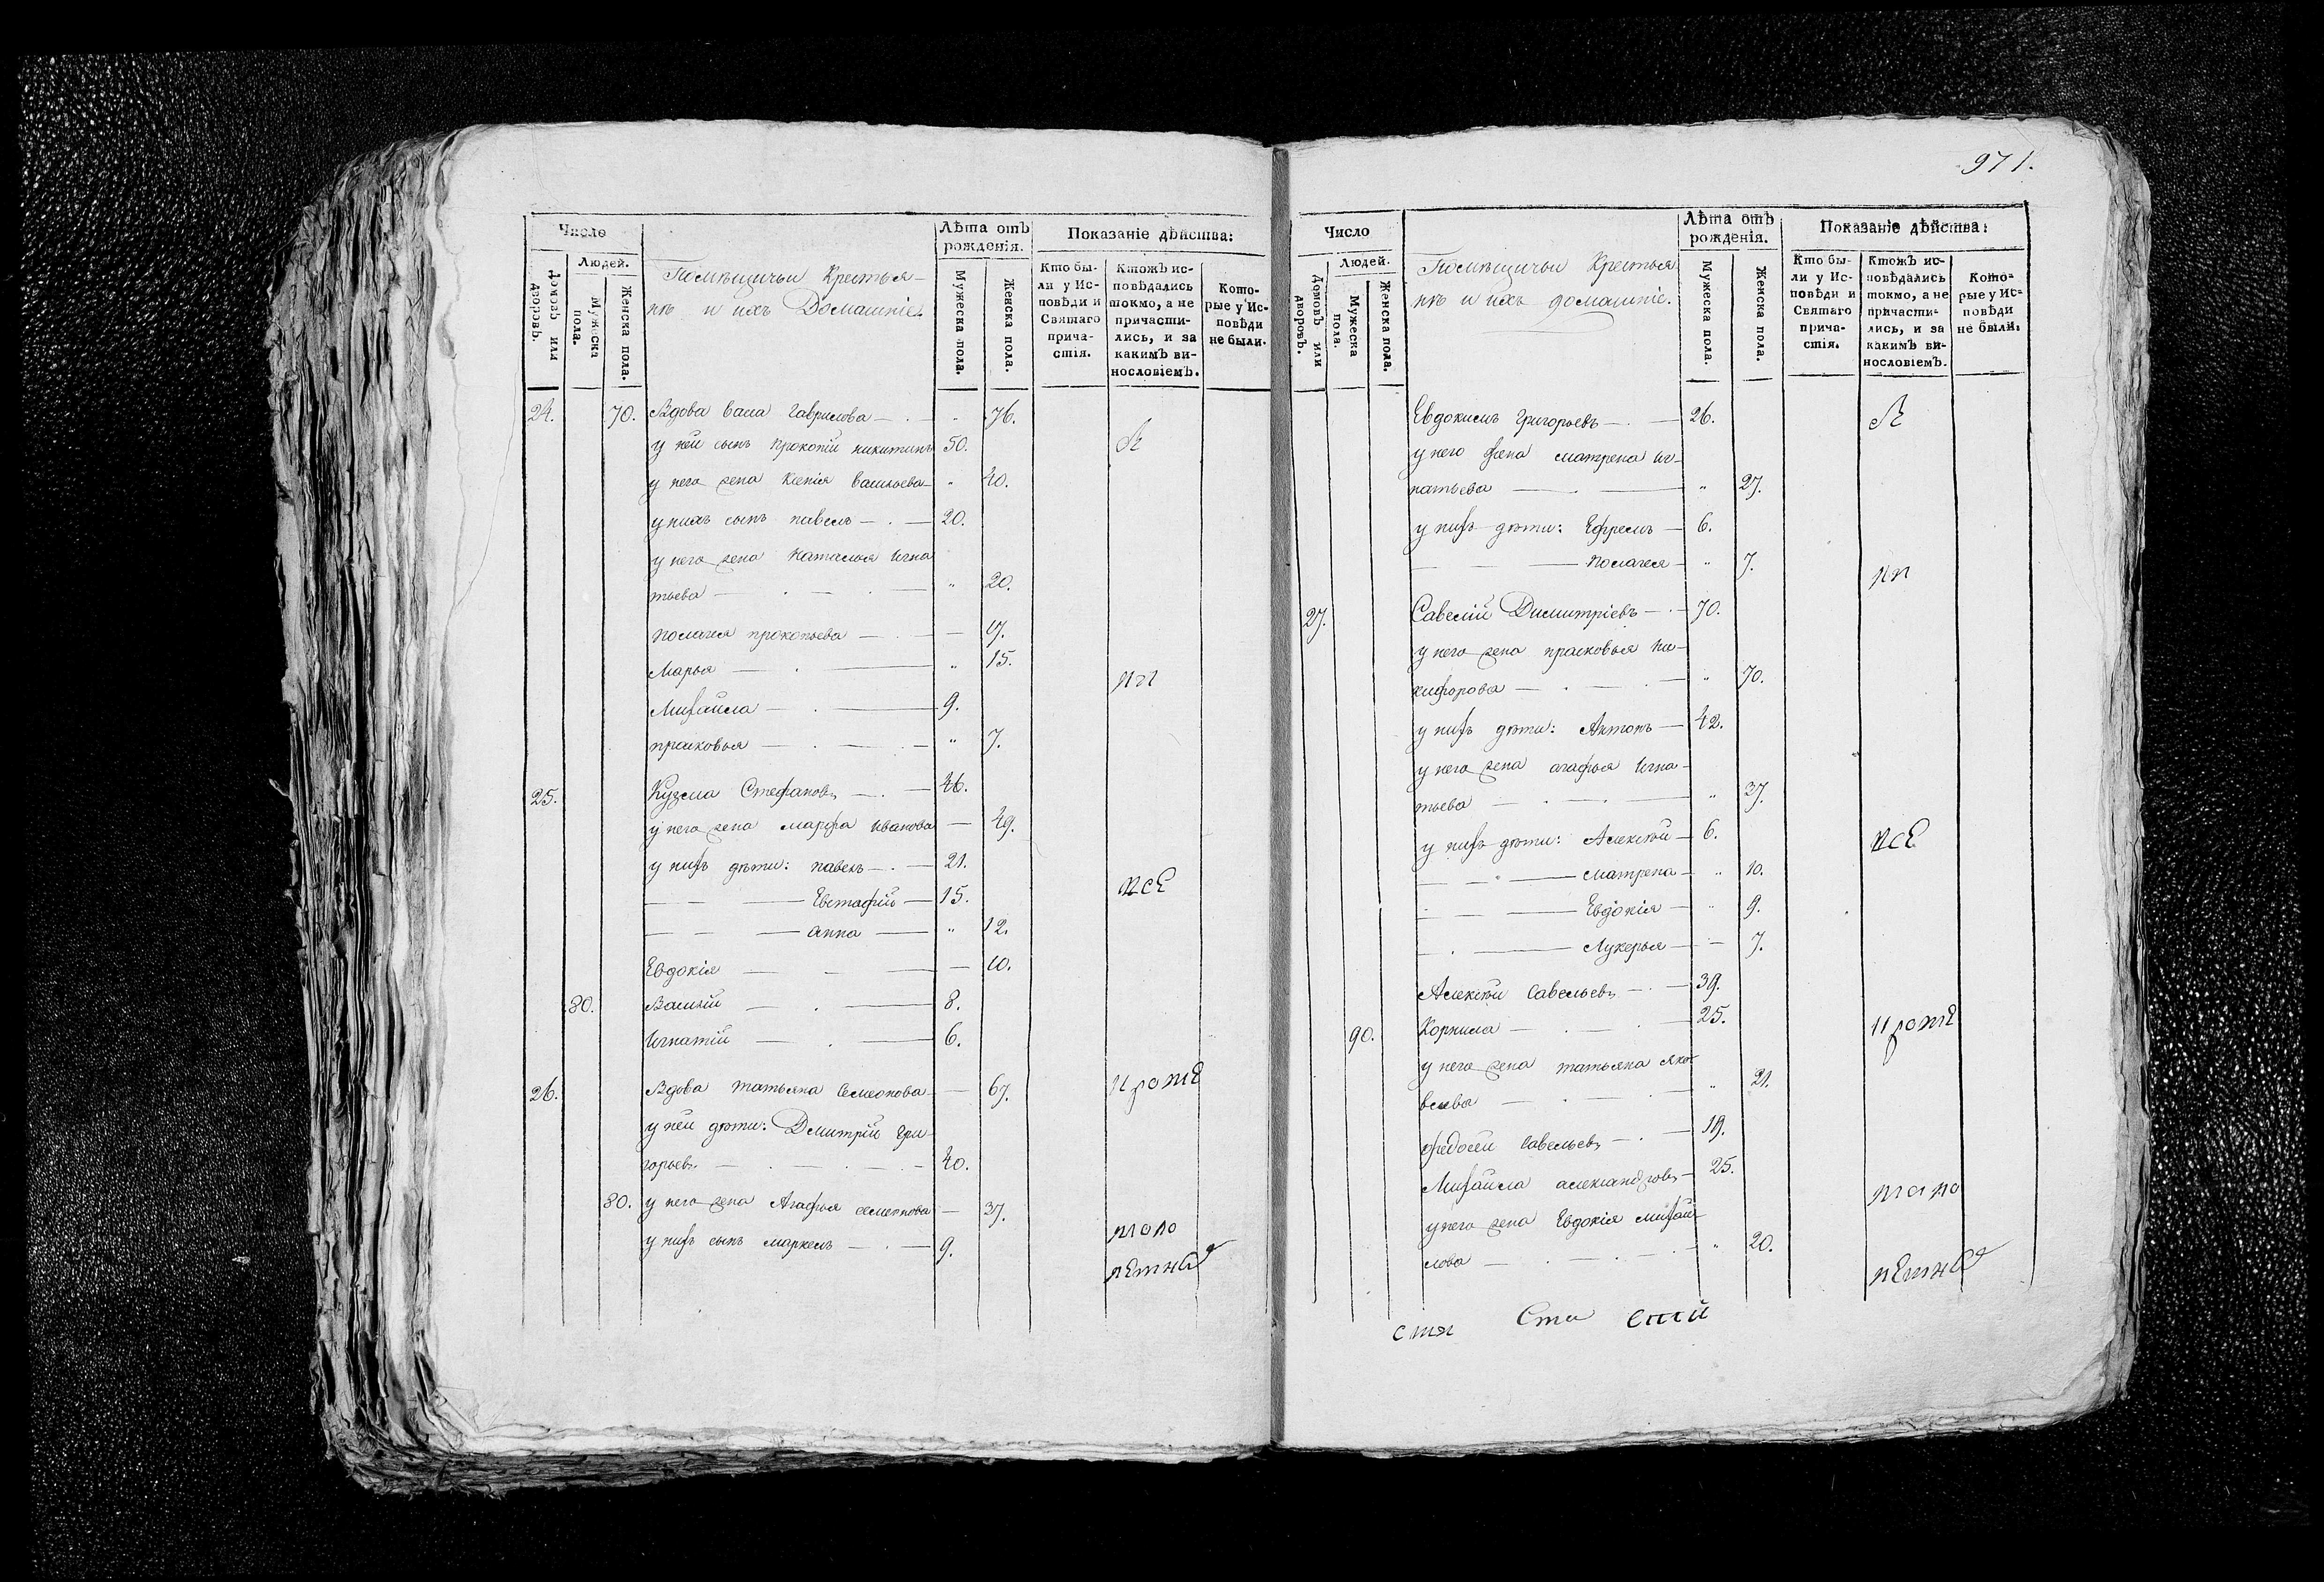 Число
Людей.
Домовъ или дворовъ.
Мужеска пола.
Женска пола.
Помѣщичьи Крестья-
нѣ и ихъ Домашніе.
Лѣта отъ рожденія.
Мужеска пола.
Женска пола.
Показаніе дѣйства:
Кто бы-
ли у Ис-
повѣди и
Святаго
прича-
стія.
Ктожъ ис-
повѣдались
токмо, а не
причасти-
лись, и за
какимъ ви-
нословіемъ.
Кото-
рые у Ис-
повѣди
не были.
24. 70. Вдова васа Гаврилова — 76.
у ней сынъ прокопій никитинъ 50.
у него жена Ксенія Васильева — 40.
у нихъ сынъ павелъ — 20.
у него жена Наталья Игна
тьева — 20.
Полагея прокопьева — 17.
Марья — 15.
Михаила — 9.
прасковья — 7.
25. Кузма Стефановъ — 46.
у него жена марфа Иванова — 49.
у нихъ дѣти: павелъ — 21.
— Евстафій — 15.
— анна — 12.
Евдокія — 10.
80. Василій — 8.
Игнатій — 6.
26. Вдова татьяна Семенова — 67.
у ней дѣти: Дмитрій Гри
горьевъ — 40.
80. у него жена Агафья семенова — 37.
у нихъ сынъ маркелъ — 9.
971.
Число
Людей.
Домовъ или дворовъ.
Мужеска пола.
Женска пола.
Помѣщичьи Крестья
нѣ и ихъ домашніе.
Лѣта отъ рожденія.
Мужеска пола.
Женска пола.
Показаніе дѣйства:
Кто бы-
ли у Ис-
повѣди и
Святаго
прича-
стія.
Ктожъ ис-
повѣдались
токмо, а не
причасти-
лись, и за
какимъ ви-
нословіемъ.
Кото-
рые у Ис-
повѣди
не были.
Евдокимъ григорьевъ — 26.
у него жена матрена иг-
натьева — 27.
у нихъ дѣти: Ефремъ — 6.
— Полагея — 7.
27. Савелій Димитріевъ — 70.
у него жена прасковья ни-
кифорова — 70.
у нихъ дѣти: Антонъ — 42.
у него жена агафья Игна-
тьева — 37.
у нихъ дѣти: Алексѣй — 6.
— матрена — 10.
— Евдокія — 9.
— Лукерья — 7.
Алексѣй Савельевъ — 39.
90. Корнила — 25.
у него жена татьяна Яко
влева — 21.
федосѣй Савельевъ — 19.
Михаила александровъ — 25.
у него жена Евдокія михай
лова — 20.